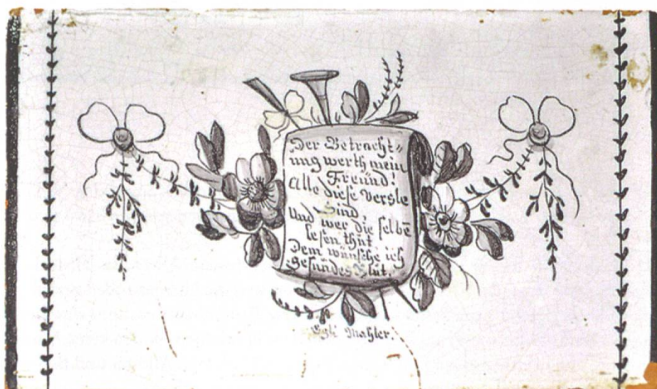 Der Betracht=
ung werth mein
Freünd!
Alle diese Versle
Sind
Und wer die selbe
lesen thüt
Dem wünsche ich
Gesundes Blut.
Egli Mahler.